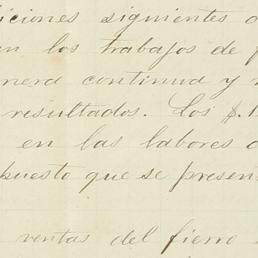 iciones siguientes d
en los trabajos de p
nera continua y r
resultados. Los $.1
en las labores d
puesto que se presen
ventas del fierro